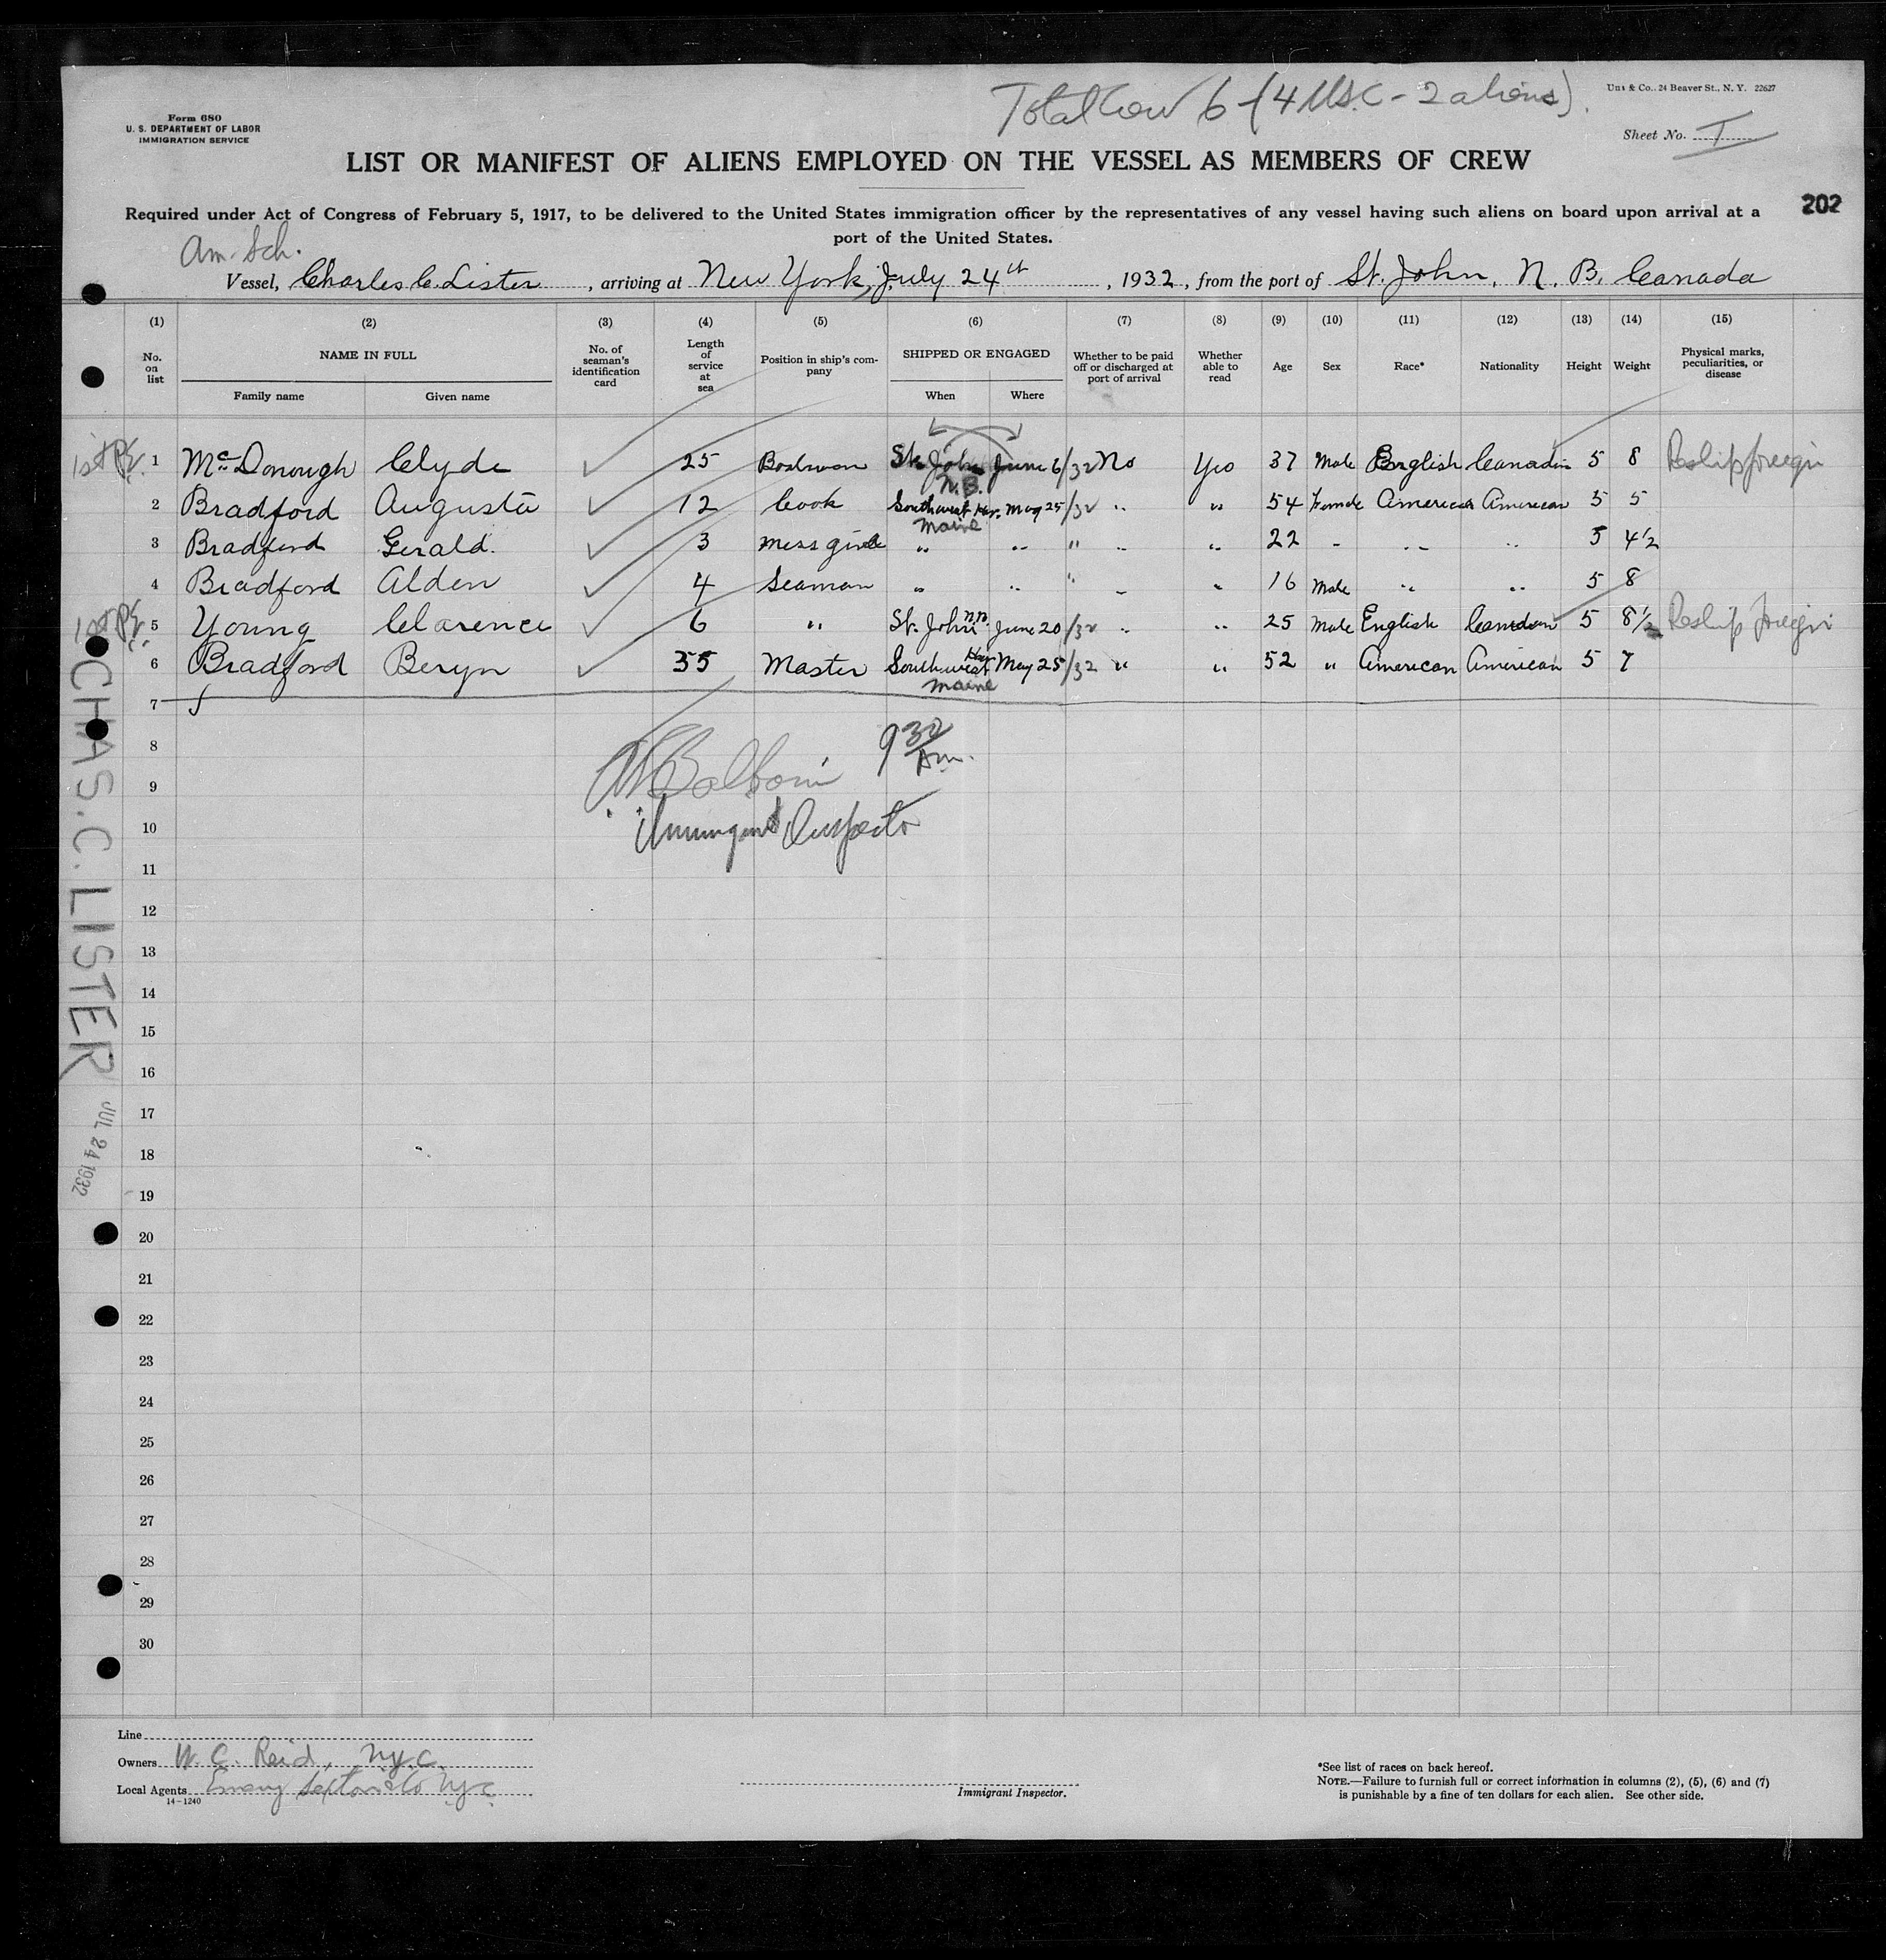 Total Crew 6 - (4 U.S.C - 2 aliens).
Unz & Co., 24 Beaver St., N. Y. 22627
Form 680
U. S. DEPARTMENT OF LABOR
IMMIGRATION SERVICE
Sheet No. I
LIST OR MANIFEST OF ALIENS EMPLOYED ON THE VESSEL AS MEMBERS OF CREW
Required under Act of Congress of February 5, 1917, to be delivered to the United States immigration officer by the representatives of any vessel having such aliens on board upon arrival at a
port of the United States.
202
Am. Sch.
Vessel, Charles C. Lister, arriving at New York, July 24th, 1932, from the port of St. John, N. B. Canada
(1) (2) (3) (4) (5) (6) (7) (8) (9) (10) (11) (12) (13) (14) (15)
No. on list NAME IN FULL Family name Given name No. of seaman's identification card Length of service at sea Position in ship's company SHIPPED OR ENGAGED When Where Whether to be paid off or discharged at port of arrival Whether able to read Age Sex Race* Nationality Height Weight Physical marks, peculiarities, or disease
1 McDonough Clyde 25 Boatswain St. John N.B. June 6/32 No Yes 37 Male English Canadian 5 8 Reship foreign
2 Bradford Augusta 12 Cook Southwest Har. Maine May 25/32 " " 54 Female American American 5 5
3 Bradford Gerald. 3 mess girl " " " " " 22 " " " 5 4½
4 Bradford Alden 4 Seaman " " " " " 16 Male " " 5 8
5 Young Clarence 6 " St. John N.B. June 20/32 " " 25 Male English Canadian 5 8½ Reship foreign
6 Bradford Beryn 35 Master Southwest Har Maine May 25/32 " " 52 " American American 5 7
7
8
9
10
11
12
13
14
15
16
17
18
19
20
21
22
23
24
25
26
27
28
29
30
9 30 Am.
Immigrant Inspector
CHAS. C. LISTER
JUL 24 1932
Line
Owners W. C. Reid, N.Y.C.
Local Agents Emery Sexton & Co N.Y.C
14-1240
Immigrant Inspector.
*See list of races on back hereof.
NOTE.—Failure to furnish full or correct information in columns (2), (5), (6) and (7)
is punishable by a fine of ten dollars for each alien. See other side.